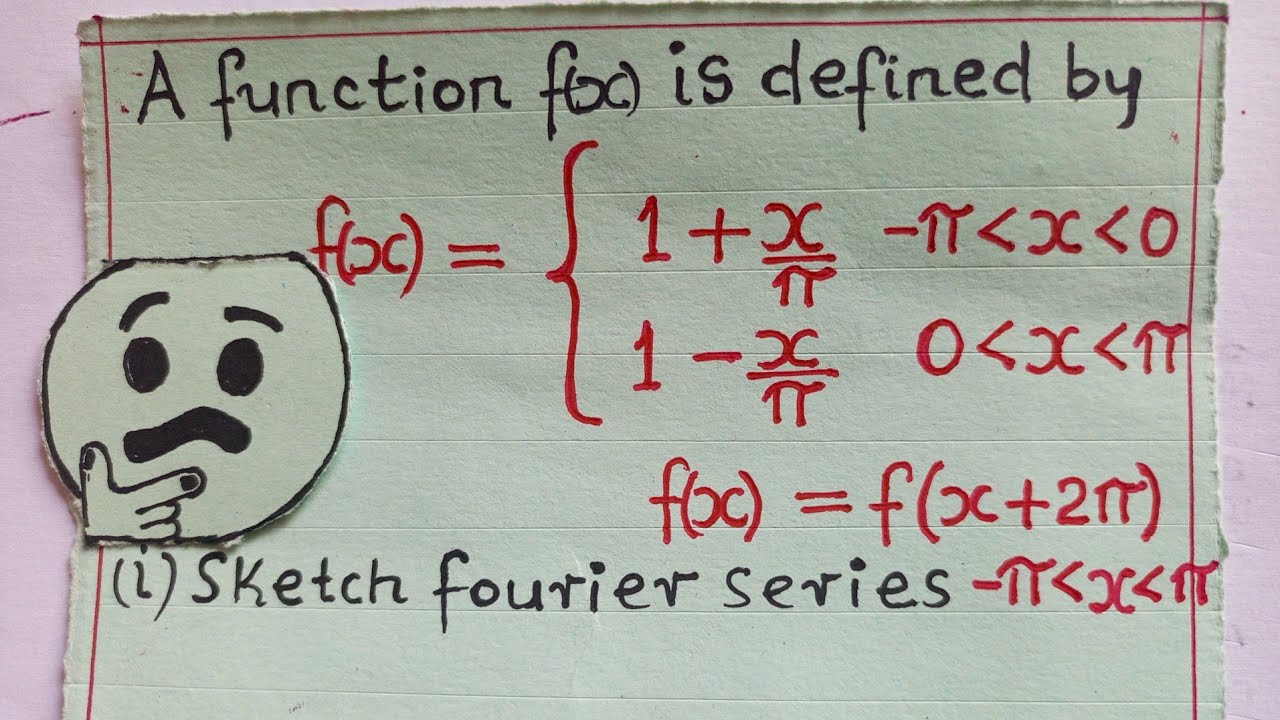 A function f(x) is defined by
f(x) = { 1 + x/π -π < x < 0
1 - x/π 0 < x < π
f(x) = f(x+2π)
(i) Sketch fourier series -π<x<π